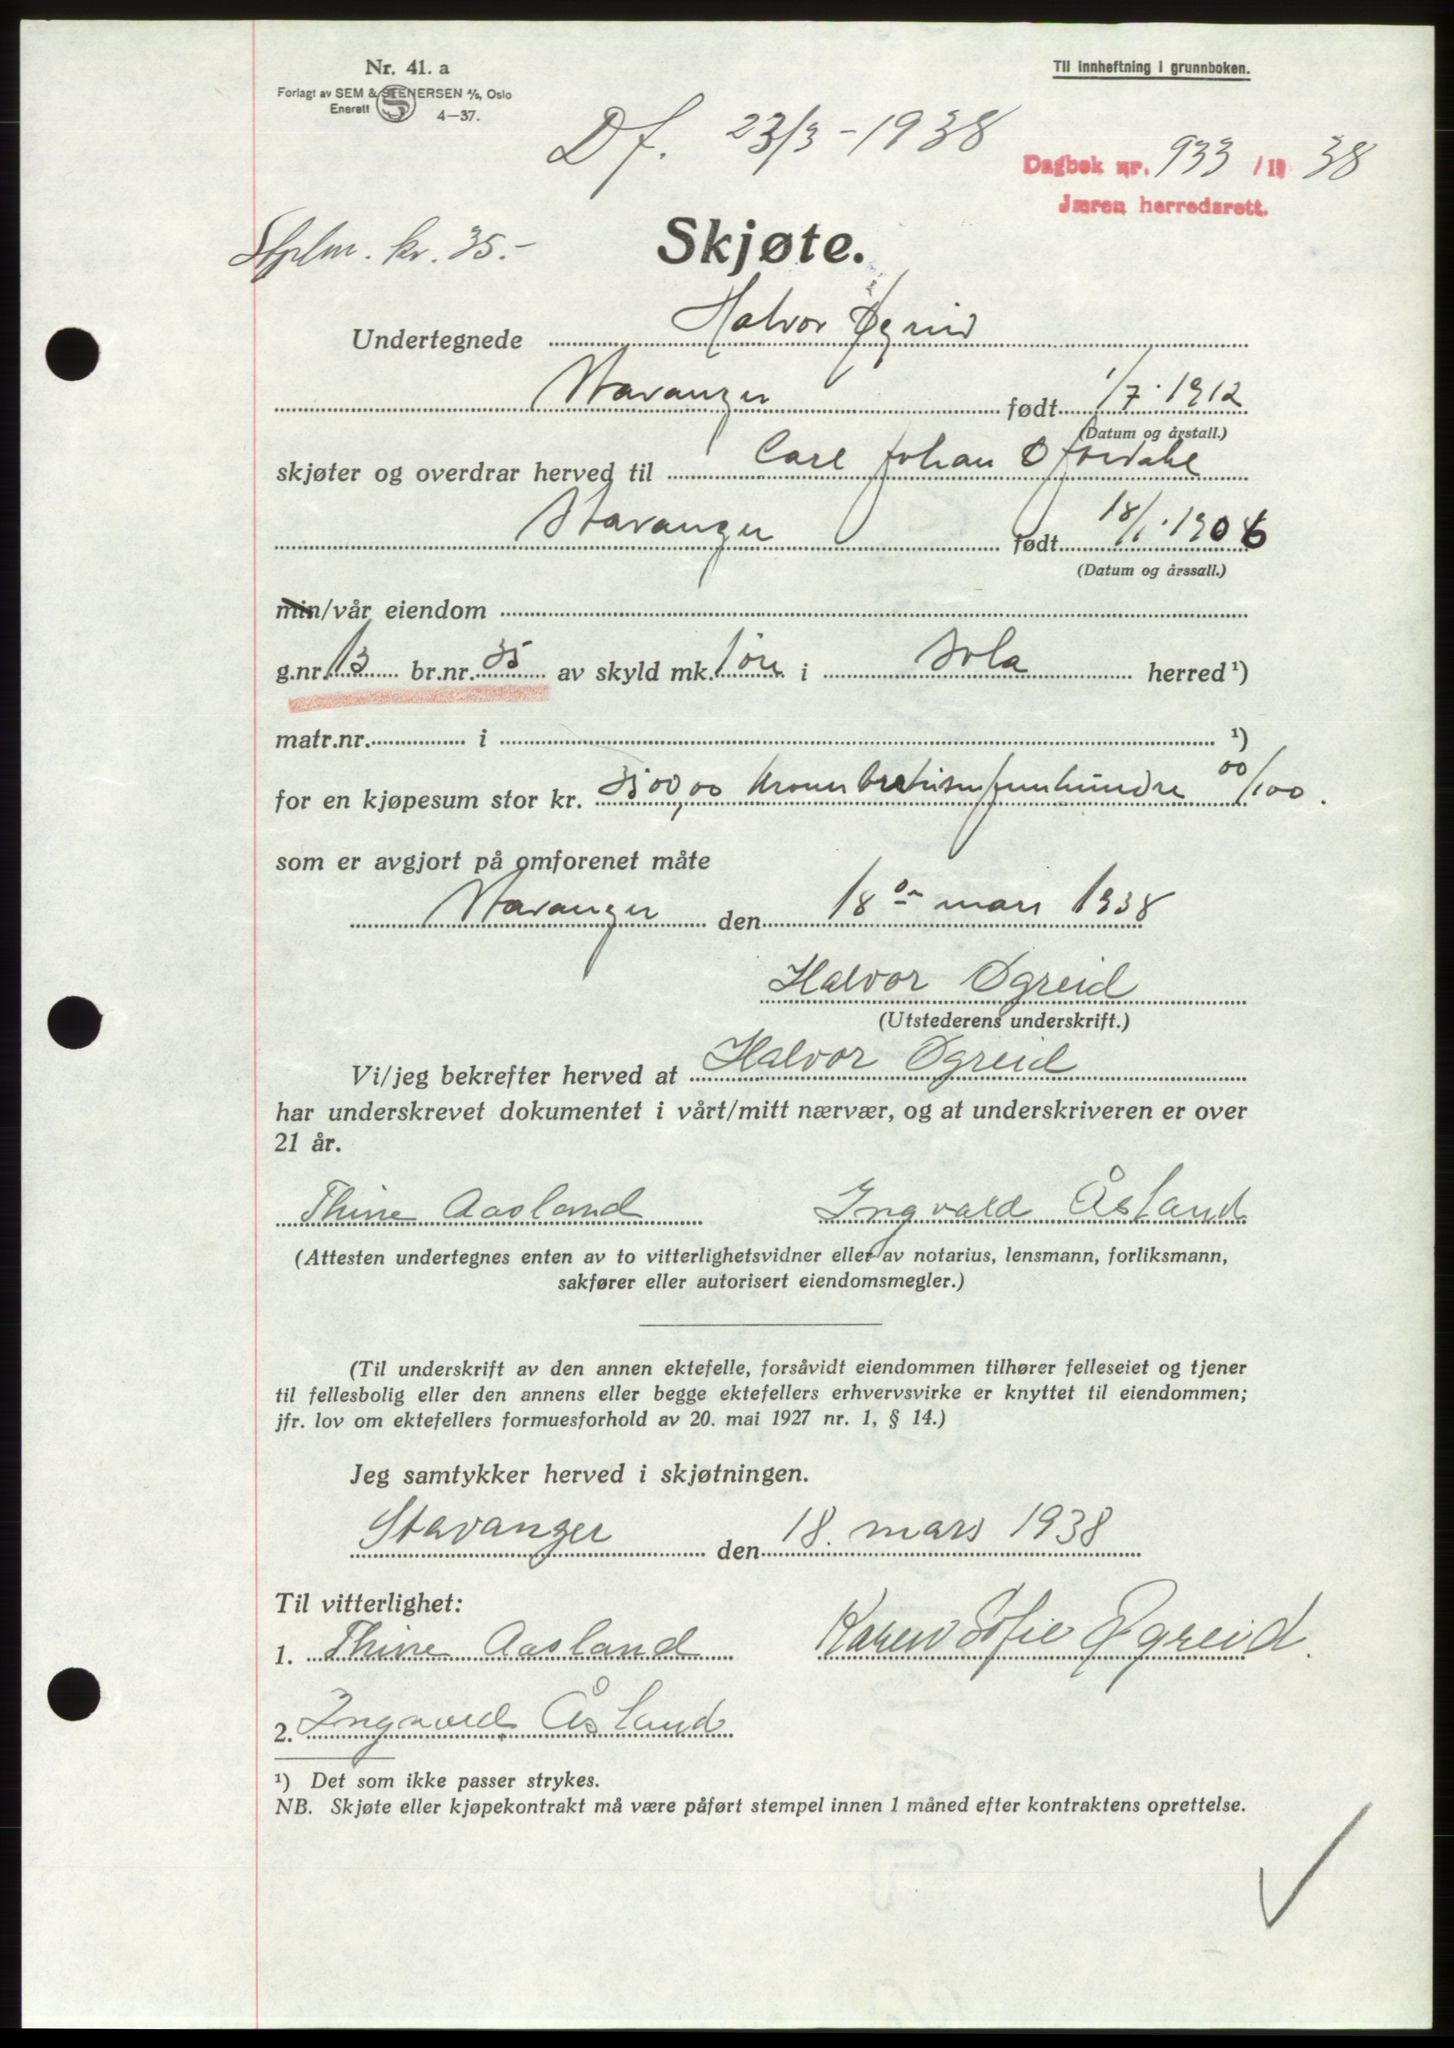 Nr. 41. a
Til innheftning i grunnboken.
Forlagt av SEM & STENERSEN A/S, Oslo
Enerett
4—37.
Df. 23/3 - 1938
Dagbok nr. 933 /19 38
Jæren herredsrett.
Stplm. kr. 35.-
Skjøte.
Undertegnede Halvor Øgreid
Stavanger født 1/7. 1912
(Datum og årstall.)
skjøter og overdrar herved til Carl Johan
Stavanger født 18/1. 1906
(Datum og årssall.)
min/vår eiendom
g.nr. 13 br.nr. 35 av skyld mk. 1 øre i Sola herred ¹)
matr.nr. i ¹)
for en kjøpesum stor kr. 3500,00 kroner tretusenfemhundre 00/100.
som er avgjort på omforenet måte
Stavanger den 18de mars 1938
Halvor Øgreid
(Utstederens underskrift.)
Vi/jeg bekrefter herved at Halvor Øgreid
har underskrevet dokumentet i vårt/mitt nærvær, og at underskriveren er over
21 år.
Thine Aasland Ingvald Åsland
(Attesten undertegnes enten av to vitterlighetsvidner eller av notarius, lensmann, forliksmann,
sakfører eller autorisert eiendomsmegler.)
(Til underskrift av den annen ektefelle, forsåvidt eiendommen tilhører felleseiet og tjener
til fellesbolig eller den annens eller begge ektefellers erhvervsvirke er knyttet til eiendommen;
jfr. lov om ektefellers formuesforhold av 20. mai 1927 nr. 1, § 14.)
Jeg samtykker herved i skjøtningen.
Stavanger den 18. mars 1938
Til vitterlighet:
1. Thine Aasland Karen Sofie Øgreid.
2. Ingvald Åsland
¹) Det som ikke passer strykes.
NB. Skjøte eller kjøpekontrakt må være påført stempel innen 1 måned efter kontraktens oprettelse.